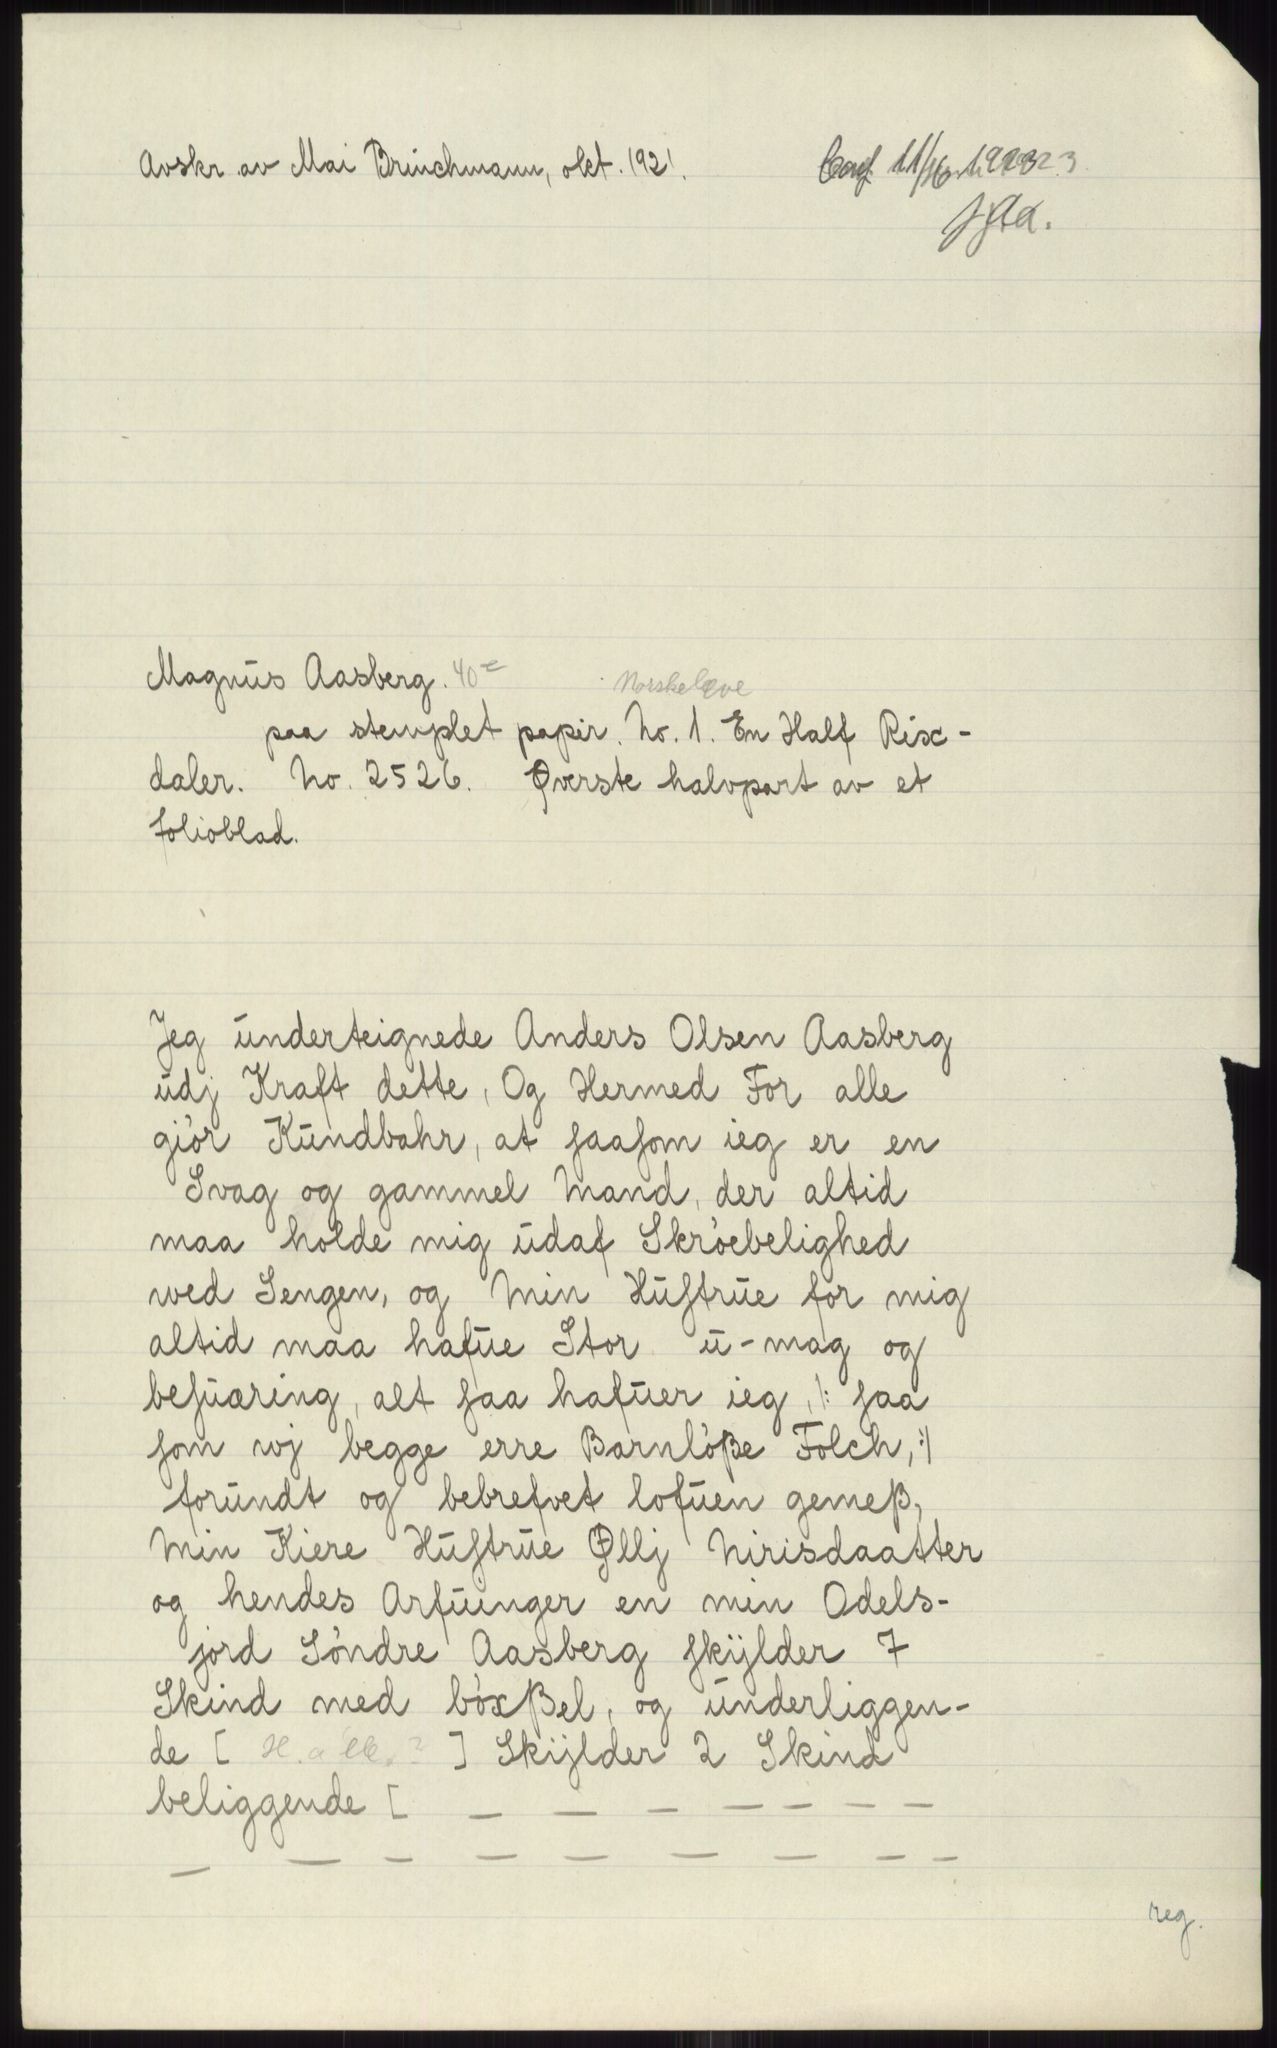 Avskr. av Mai Brinchmann, okt. 1921.
Conf. 11/
Magnus Aasberg. 40
Norskeløve
paa stemplet papir. No. 1. En Half Rixc-
daler. No. 2526. Øverste halvpart av et
folioblad.
Jeg underteignede Anders Olsen Aasberg
udj Kraft dette, Og Hermed For alle
giör Kundbahr, at saasom ieg er en
Svag og gammel Mand, der altid
maa holde mig udaf Skröebelighed
wed Sengen, og Min Hustrue for mig
altid maa hafue Stor u-mag og
besuæring, alt saa hafuer ieg, /: saa
som wj begge erre Barnlöße Folch, :/
forundt og bebrefvet lofuen gemeß,
Min Kiere Hustrue Øllj Nirisdaatter
og hendes Arfuinger en min Odels-
jord Söndre Aasberg skÿlder 7
Skind med böxßel, og underliggen-
de [ ] Skÿlder 2 Skind
beliggende [ – – – – – – –
– – – – – – – – –
reg.